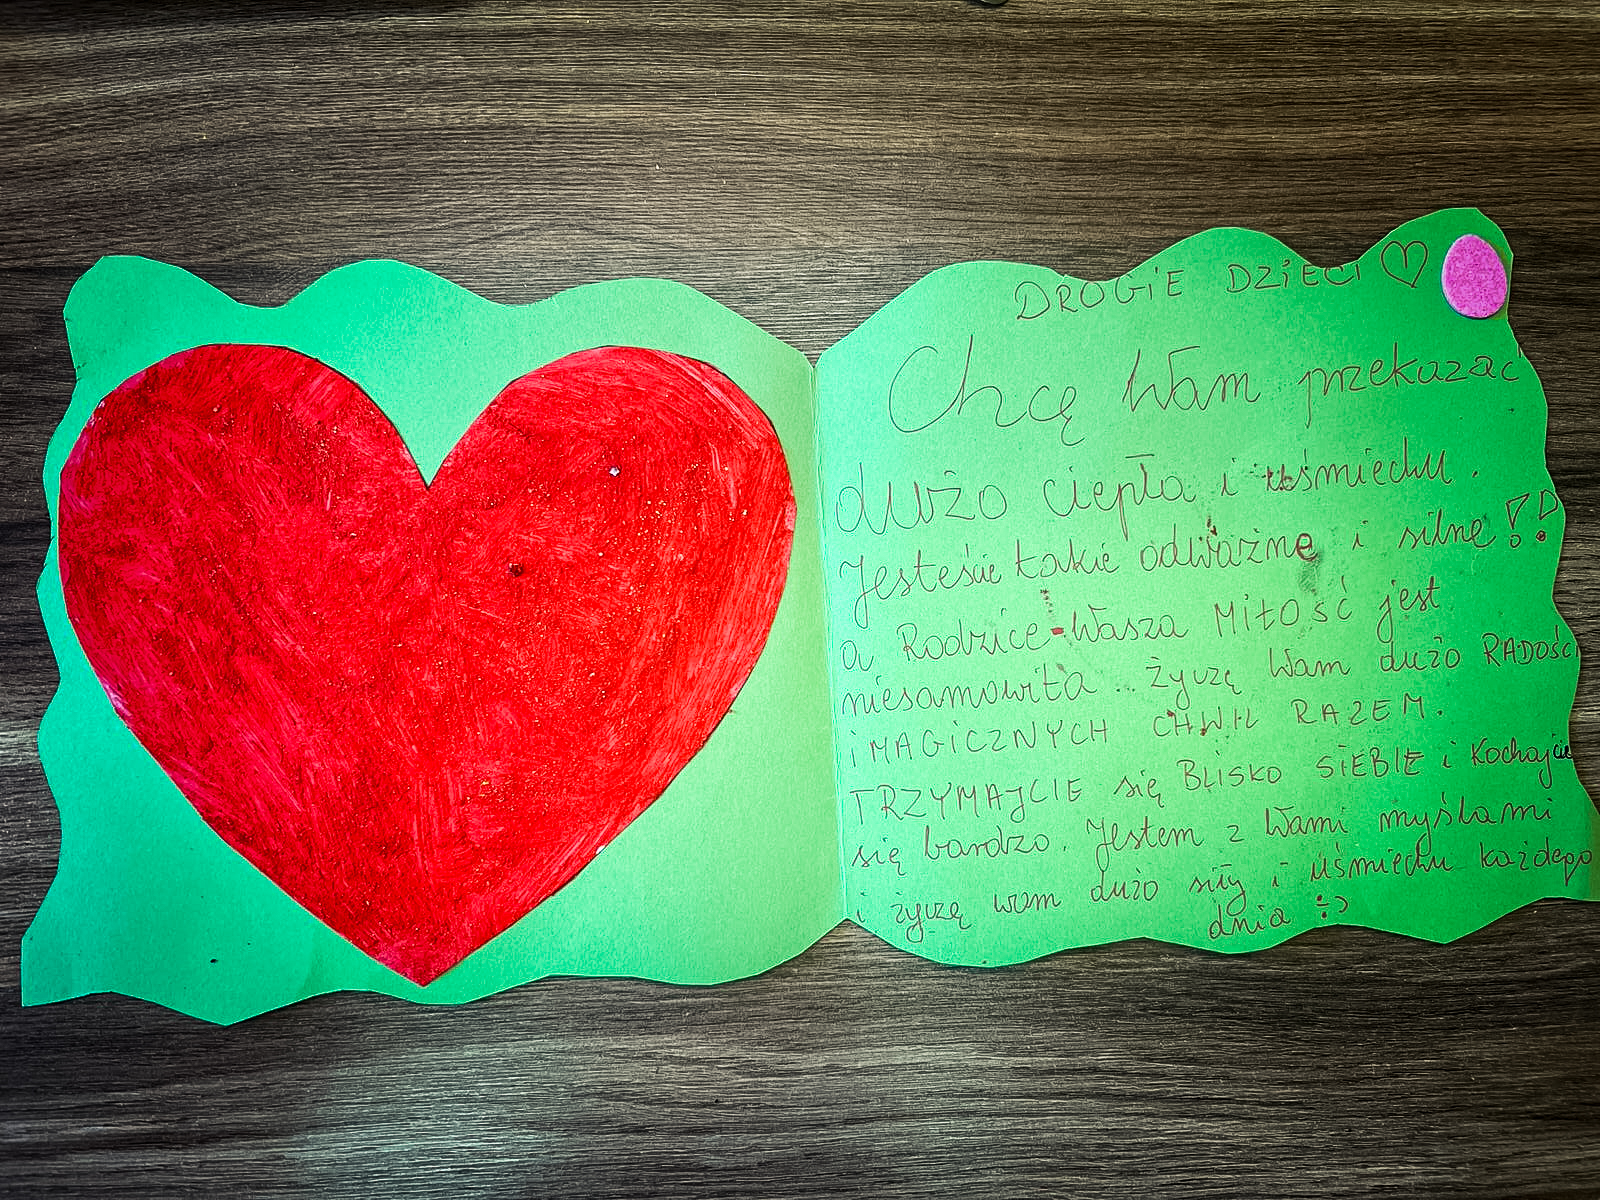 DROGIE DZIECI ♡
Chcę Wam przekazać
dużo ciepła i uśmiechu.
Jesteście takie odważne i silne !!
a Rodzice Wasza MIŁOŚĆ jest
niesamowita. Życzę Wam dużo RADOŚCI
i MAGICZNYCH CHWIL RAZEM.
TRZYMAJCIE się BLISKO SIEBIE i Kochajcie
się bardzo. Jestem z Wami myślami
i życzę wam dużo siły i uśmiechu każdego
dnia :)